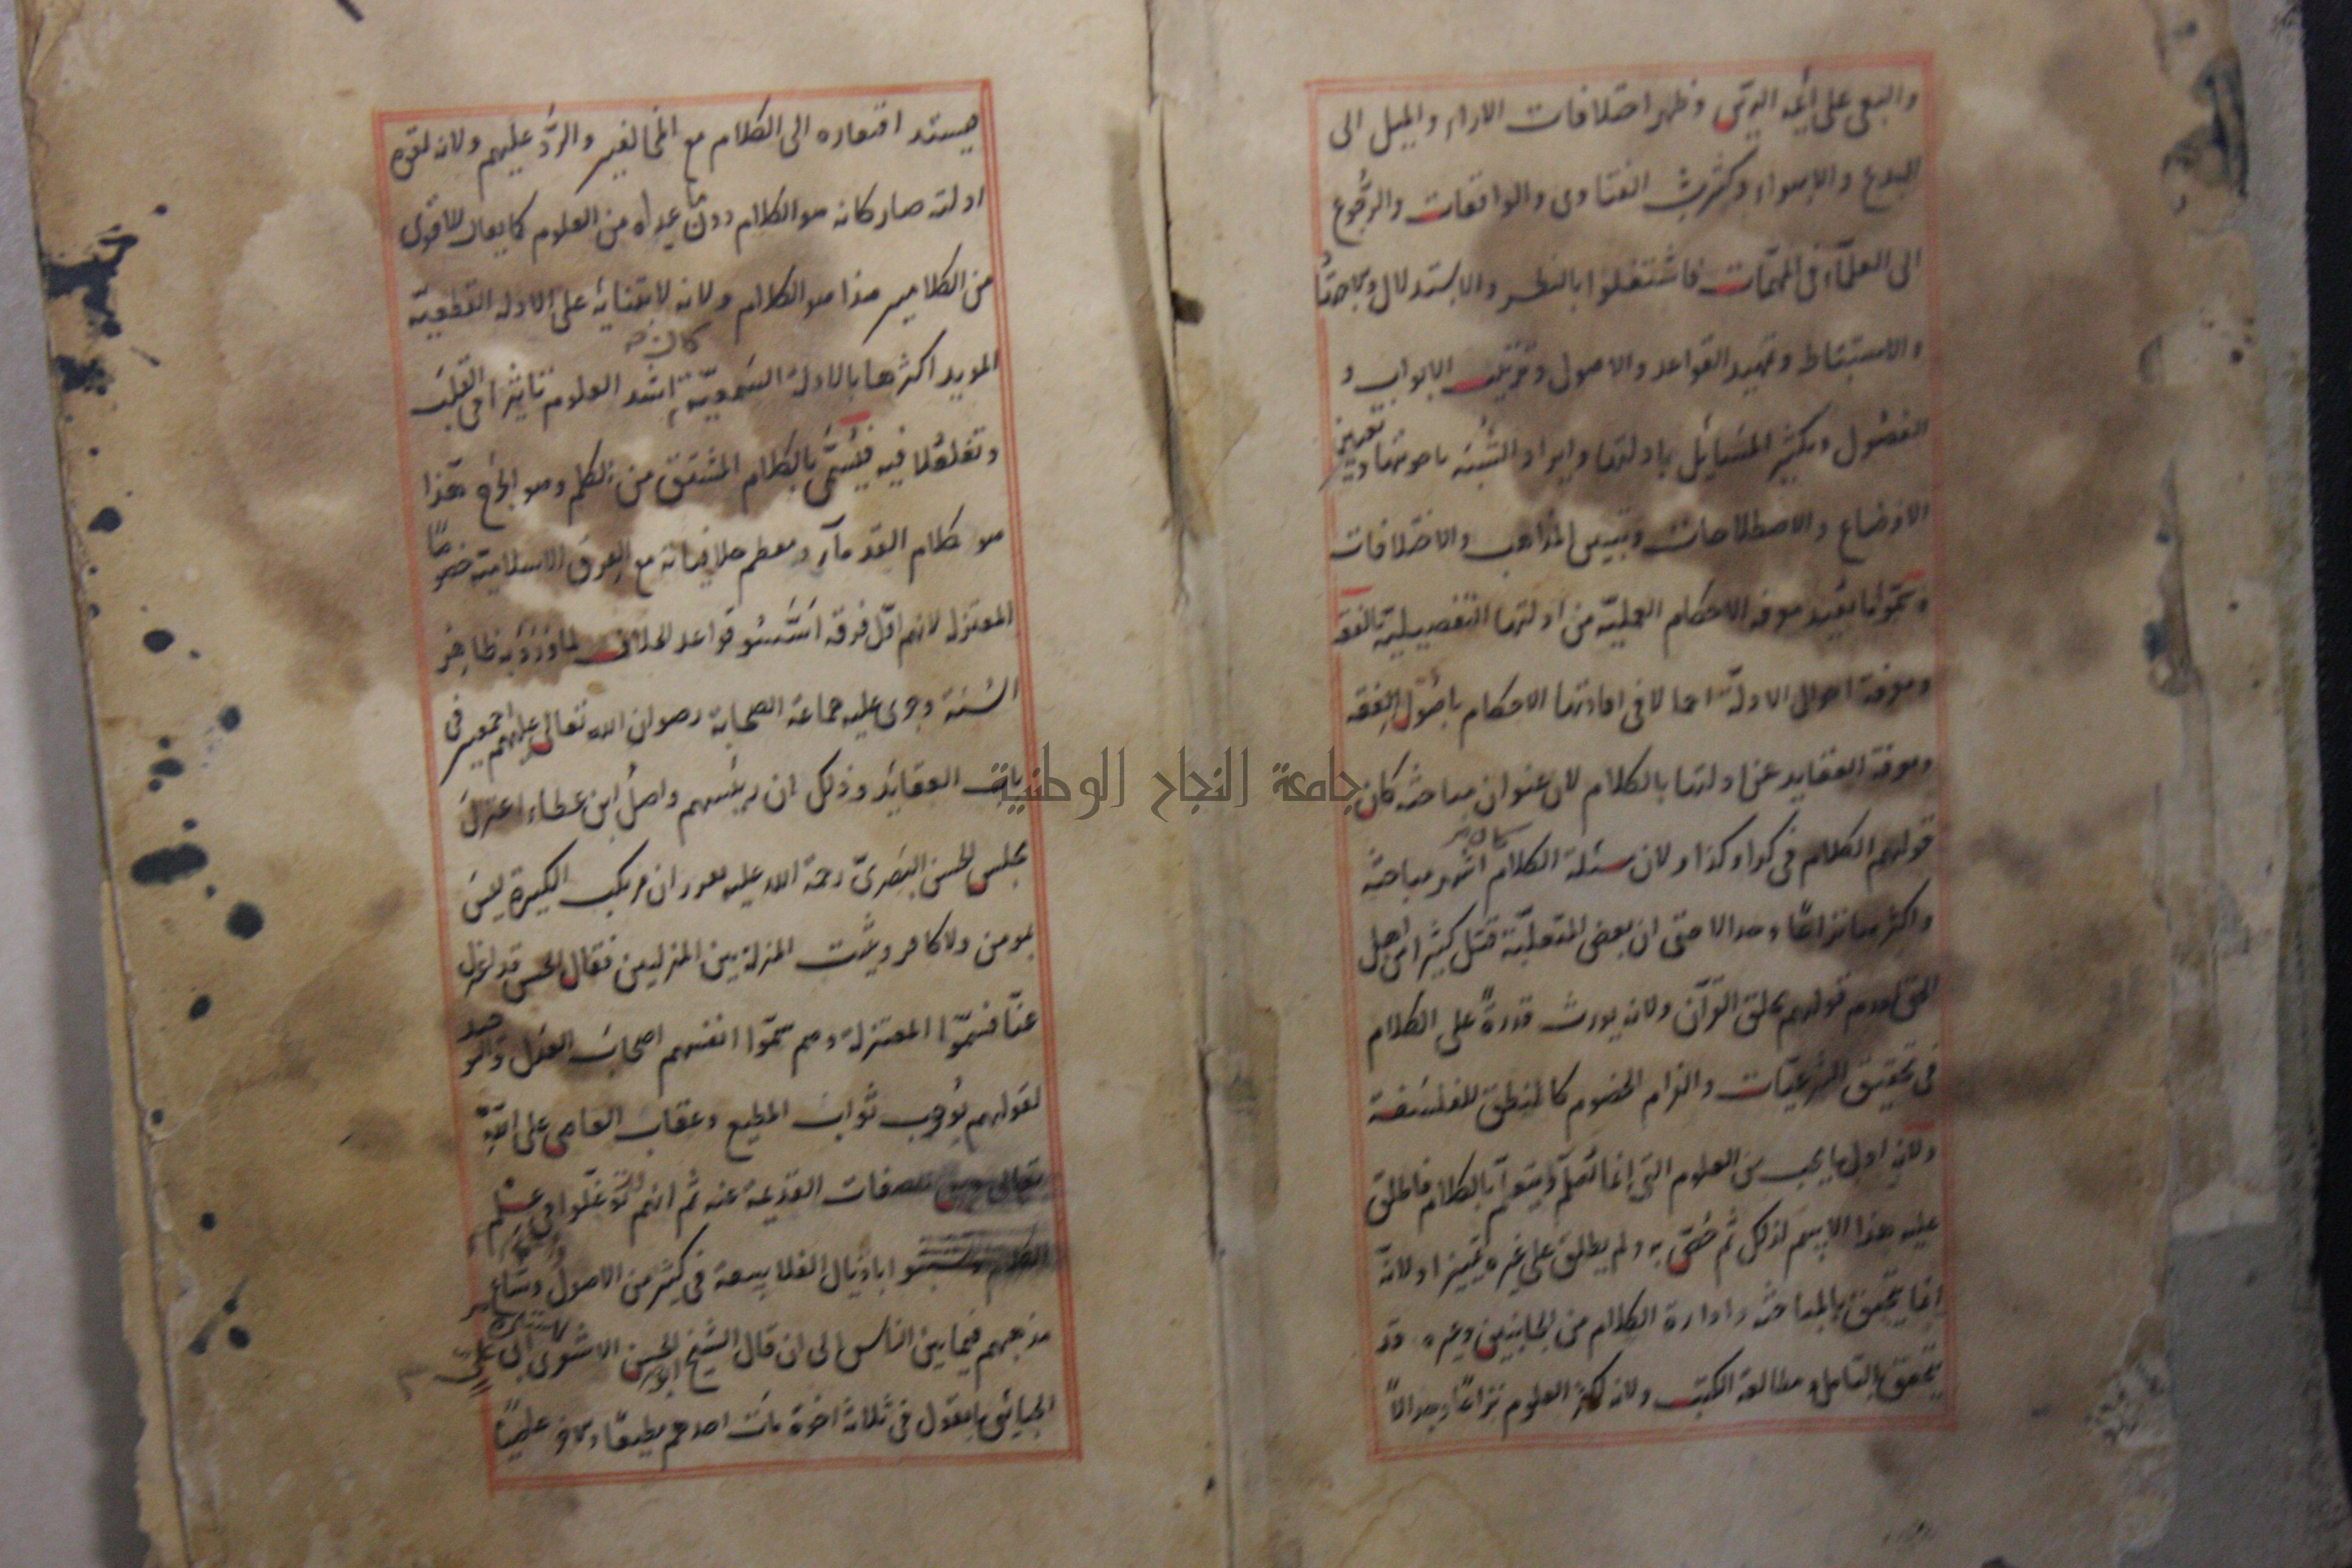 والبغى على أئمة الدين وظهر اختلافات الاراء والميل الى
البدع والاهواء وكثرت الفتاوى والواقعات والرجوع
الى العلمآء فى المهمّات فاشتغلوا بالنظر والاستدلال والاجتها
والاستنباط وتمهيد القواعد والاصول وترتيب الابواب و
الفصُول وتكثير المسَائل بادلتها وايراد الشُبَه باجوبتها وتعيين
الاوضاع والاصطلاحات وتبيين المذاهب والاختلافات
وسَمّوا ما يُفيد معرفة الاحكام العمليّة من ادلتها التفصيلية بالفقه
ومعرفة احوال الادلّة اجمالا فى افادتها الاحكام باصُول الفقه
ومعرفة العقايد عن ادلتها بالكلام لان عنوان مباحثه كان
قولهم الكلام فى كذا وكذا ولان مسئلة الكلام كان اشهر مباحثه
واكثرها نزاعًا وجدالا حتى ان بعض المتغلّبة قتل كثيرا من اهل
الحق لعدم قولهم بخلق القرآن ولانه يورث قدرةً على الكلام
فى تحقيق الشرعيّات والزام الخصوم كالمنطق للفلسَفة
ولانه اول ما يجب من العلوم التى إنما تُعلم وتتعلّم بالكلام فاطلق
عليه هذا الاسم لذلك ثم خُصّ به ولم يطلق على غيره تميّزا ولانّه
انما يتحقق بالمباحثه وادارة الكلام من الجانبين وغيره قد
يتحقق بالتامل ومطالعة الكتب ولانه اكثر العلوم نزاعًا وجدالًا
فيشتد افتقاره الى الكلام مع المخالفين والرّد عليهم ولانه لقوة
ادلته صار كانه هو الكلام دون ما عداه من العلوم كما يقال للاقوى
من الكلامين هذا هو الكلام ولانه لابتنائه على الادلة القطعيّة
المويد اكثرها بالادلة السَمعيّة كان اشد العلوم تاثيرا فى القلب
وتغلغُلا فيه فيُسَمّى بالكلام المشتق من الكلم وهو الجرح هَذا
هو كلام القدمآء ومعظم خلافياته مع الفرق الاسلاميّة خصُوصًا
المعتزلة لانهم اوّل فرقة اسّسُو قواعد الخلاف لما ورَد به ظاهِر
السُنة وجرى عليه جماعة الصحابة رضوان الله تعالى عليهم اجمعين فى
باب العقايد وذلك ان رئيسهم واصل ابن عطاء اعتزل
مجلس الحسن البَصرىّ رحمة الله عليه يقرر ان مرتكب الكبيرة ليسَ
بمومن ولا كافر ويثبت المنزلة بين المنزلتين فقال الحسن قد اعتزل
عنّا فسُمّوا المعتزلة وهم سَمّوا انفسهم اصحابَ العَدل والتوحيد
لقولهم بوجُوب ثواب المطيع وعقاب العاصى على الله
تعالى ونفى الصفات القديمة عنه ثم انهم توغّلوا فى علم
الكلام وتشبثو اباذيال الفلاسفة فى كثير من الاصول وشاع
مذهبهم فيما بين الناس الى ان قال الشيخ ابو الحسن الاشعرى لاستاده ابى على
الجبائى ما تقول فى ثلاثة اخوة مات احدهم مطيعًا والاخر عاصيًا
جامعة النجاح الوطنية